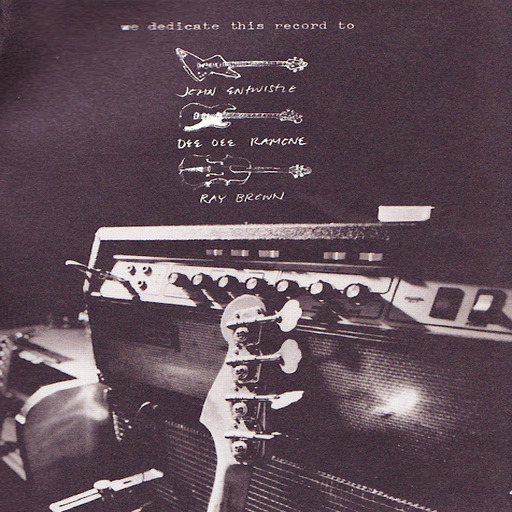 we dedicate this record to
JOHN ENTWISTLE
DEE DEE RAMONE
RAY BROWN